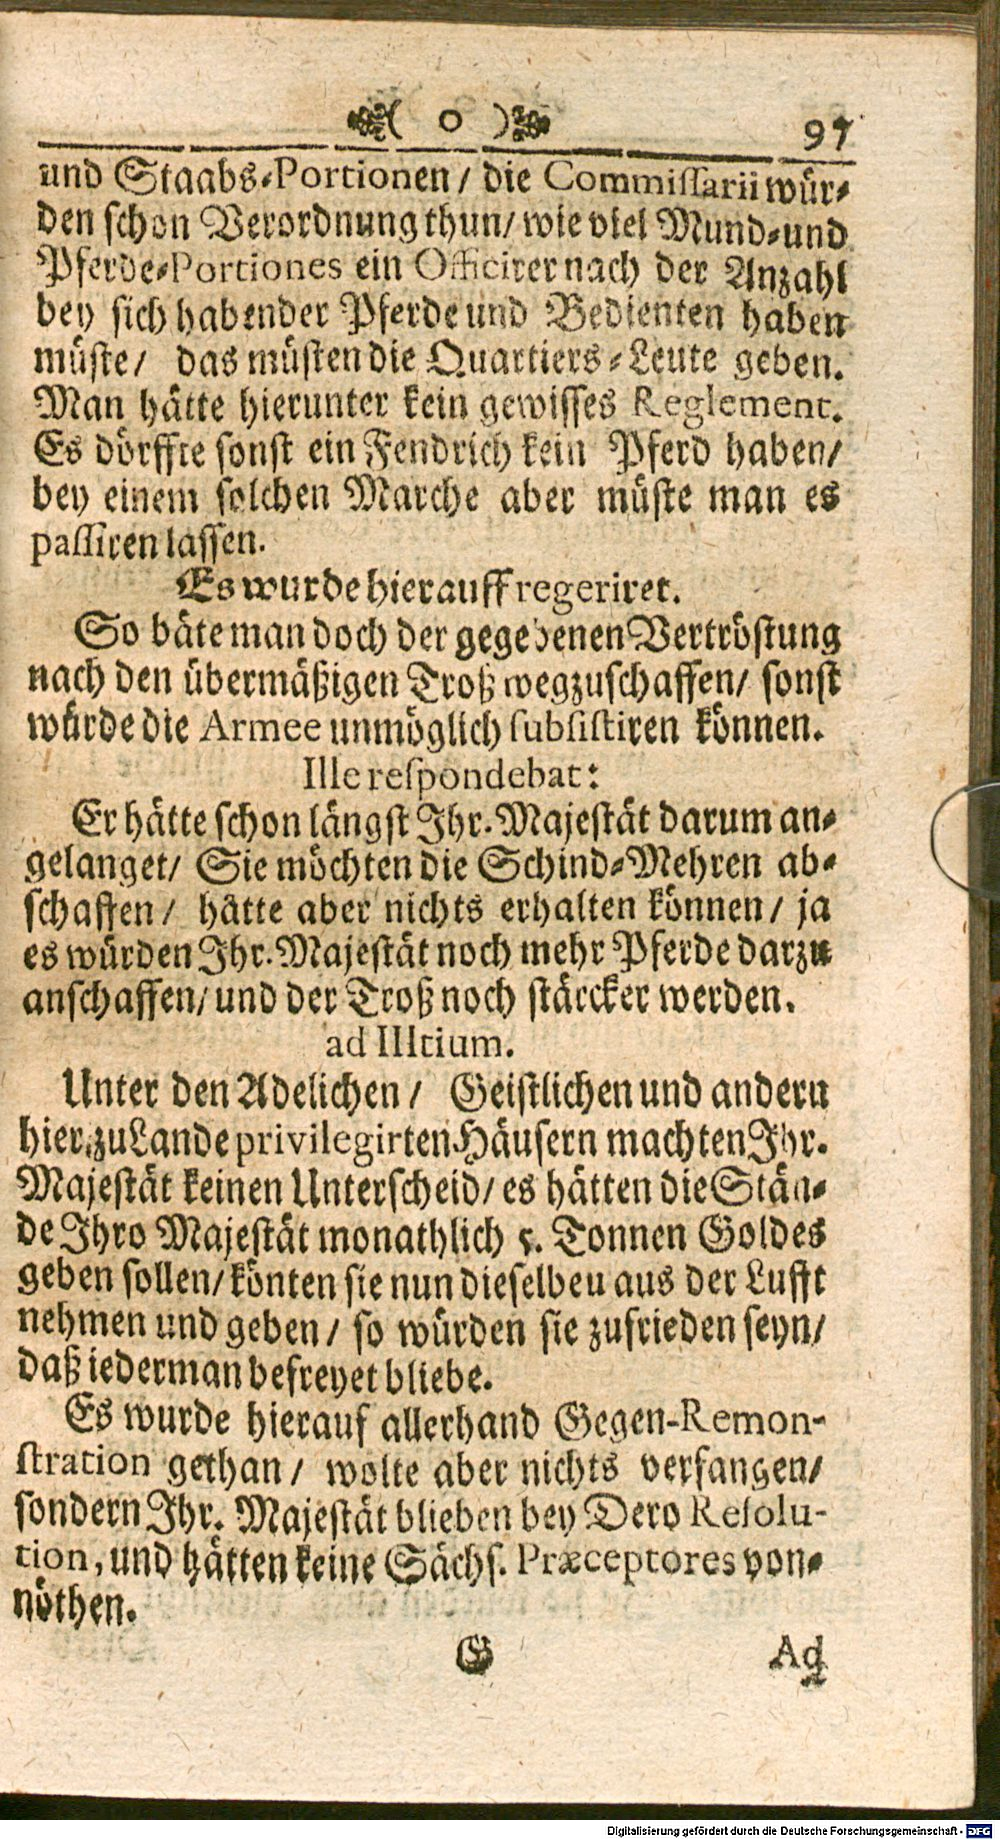 ( o ) 97
und Staabs-Portionen/ die Commissarii wür-
den schon Verordnung thun/ wie viel Mund-und
Pferde-Portiones ein Officirer nach der Anzahl
bey sich habender Pferde und Bedienten haben
müste/ das müsten die Quartiers-Leute geben.
Man hätte hierunter kein gewisses Reglement.
Es dörffte sonst ein Fendrich kein Pferd haben/
bey einem solchen Marche aber müste man es
passiren lassen.
Es wurde hierauff regeriret.
So bäte man doch der gegebenen Vertröstung
nach den übermäßigen Troß wegzuschaffen/ sonst
würde die Armee unmöglich subsistiren können.
Ille respondebat:
Er hätte schon längst Ihr. Majestät darum an-
gelanget/ Sie möchten die Schind-Mehren ab-
schaffen/ hätte aber nichts erhalten können/ ja
es würden Ihr. Majestät noch mehr Pferde darzu
anschaffen/ und der Troß noch stärcker werden.
ad IIItium.
Unter den Adelichen/ Geistlichen und andern
hier zu Lande privilegirten Häusern machten Ihr.
Majestät keinen Unterscheid/ es hätten die Stän-
de Ihro Majestät monathlich 5. Tonnen Goldes
geben sollen/ könten sie nun dieselben aus der Lufft
nehmen und geben/ so würden sie zufrieden seyn/
daß iederman befreyet bliebe.
Es wurde hierauf allerhand Gegen-Remon-
stration gethan/ wolte aber nichts verfangen/
sondern Ihr. Majestät blieben bey Dero Resolu-
tion, und hätten keine Sächs. Præceptores von-
nöthen.
G Ad
Digitalisierung gefördert durch die Deutsche Forschungsgemeinschaft - DFG